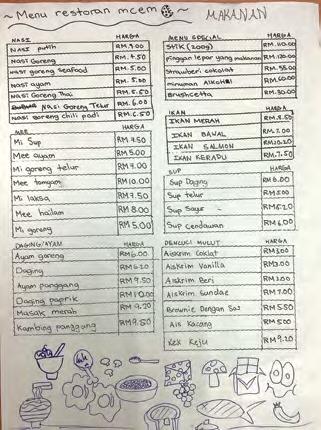 ~ Menu restoran mcem ~ MAKANAN
NASI HARGA
Nasi putih RM.4.00
Nasi Goreng RM.4.50
Nasi goreng seafood RM.5.00
Nasi ayam RM.5.50
Nasi Goreng Thai RM.5.50
Nasi Goreng Telur RM.6.00
Nasi goreng chili padi RM.6.50
MEE HARGA
Mi Sup RM.4.50
Mee ayam RM5.00
Mi goreng telur RM7.00
Mee tomyam RM10.00
Mi laksa RM7.50
Mee hailam RM 8.00
Mi goreng RM 5.00
DAGING/AYAM HARGA
Ayam goreng RM6.00
Daging
Ayam panggang RM9.50
Daging paprik
Masak merah RM 9.20
Kambing panggang RM9.50
MENU SPECIAL HARGA
STIK (200g)
Pinggan lepar yang makanan
Strawberi cokolat
minuman Alkohol
Brushcetta RM.50.00
IKAN HARGA
IKAN MERAH RM.8.50
IKAN BAWAL RM.7.00
IKAN SALMON
IKAN KERADU RM.7.50
SUP HARGA
Sup Daging RM6.00
Sup telur RM5.00
Sup Sayur RM5.20
Sup cendawan RM6.00
PENCUCI MULUT HARGA
Aiskrim Coklat RM3.00
Aiskrim Vanilla RM3.00
Aiskrim Beri RM3.00
Aiskrim Sundae RM7.00
Brownie Dengan Sos RM5.50
Ais Kacang RM5.00
Kek Keju RM9.20